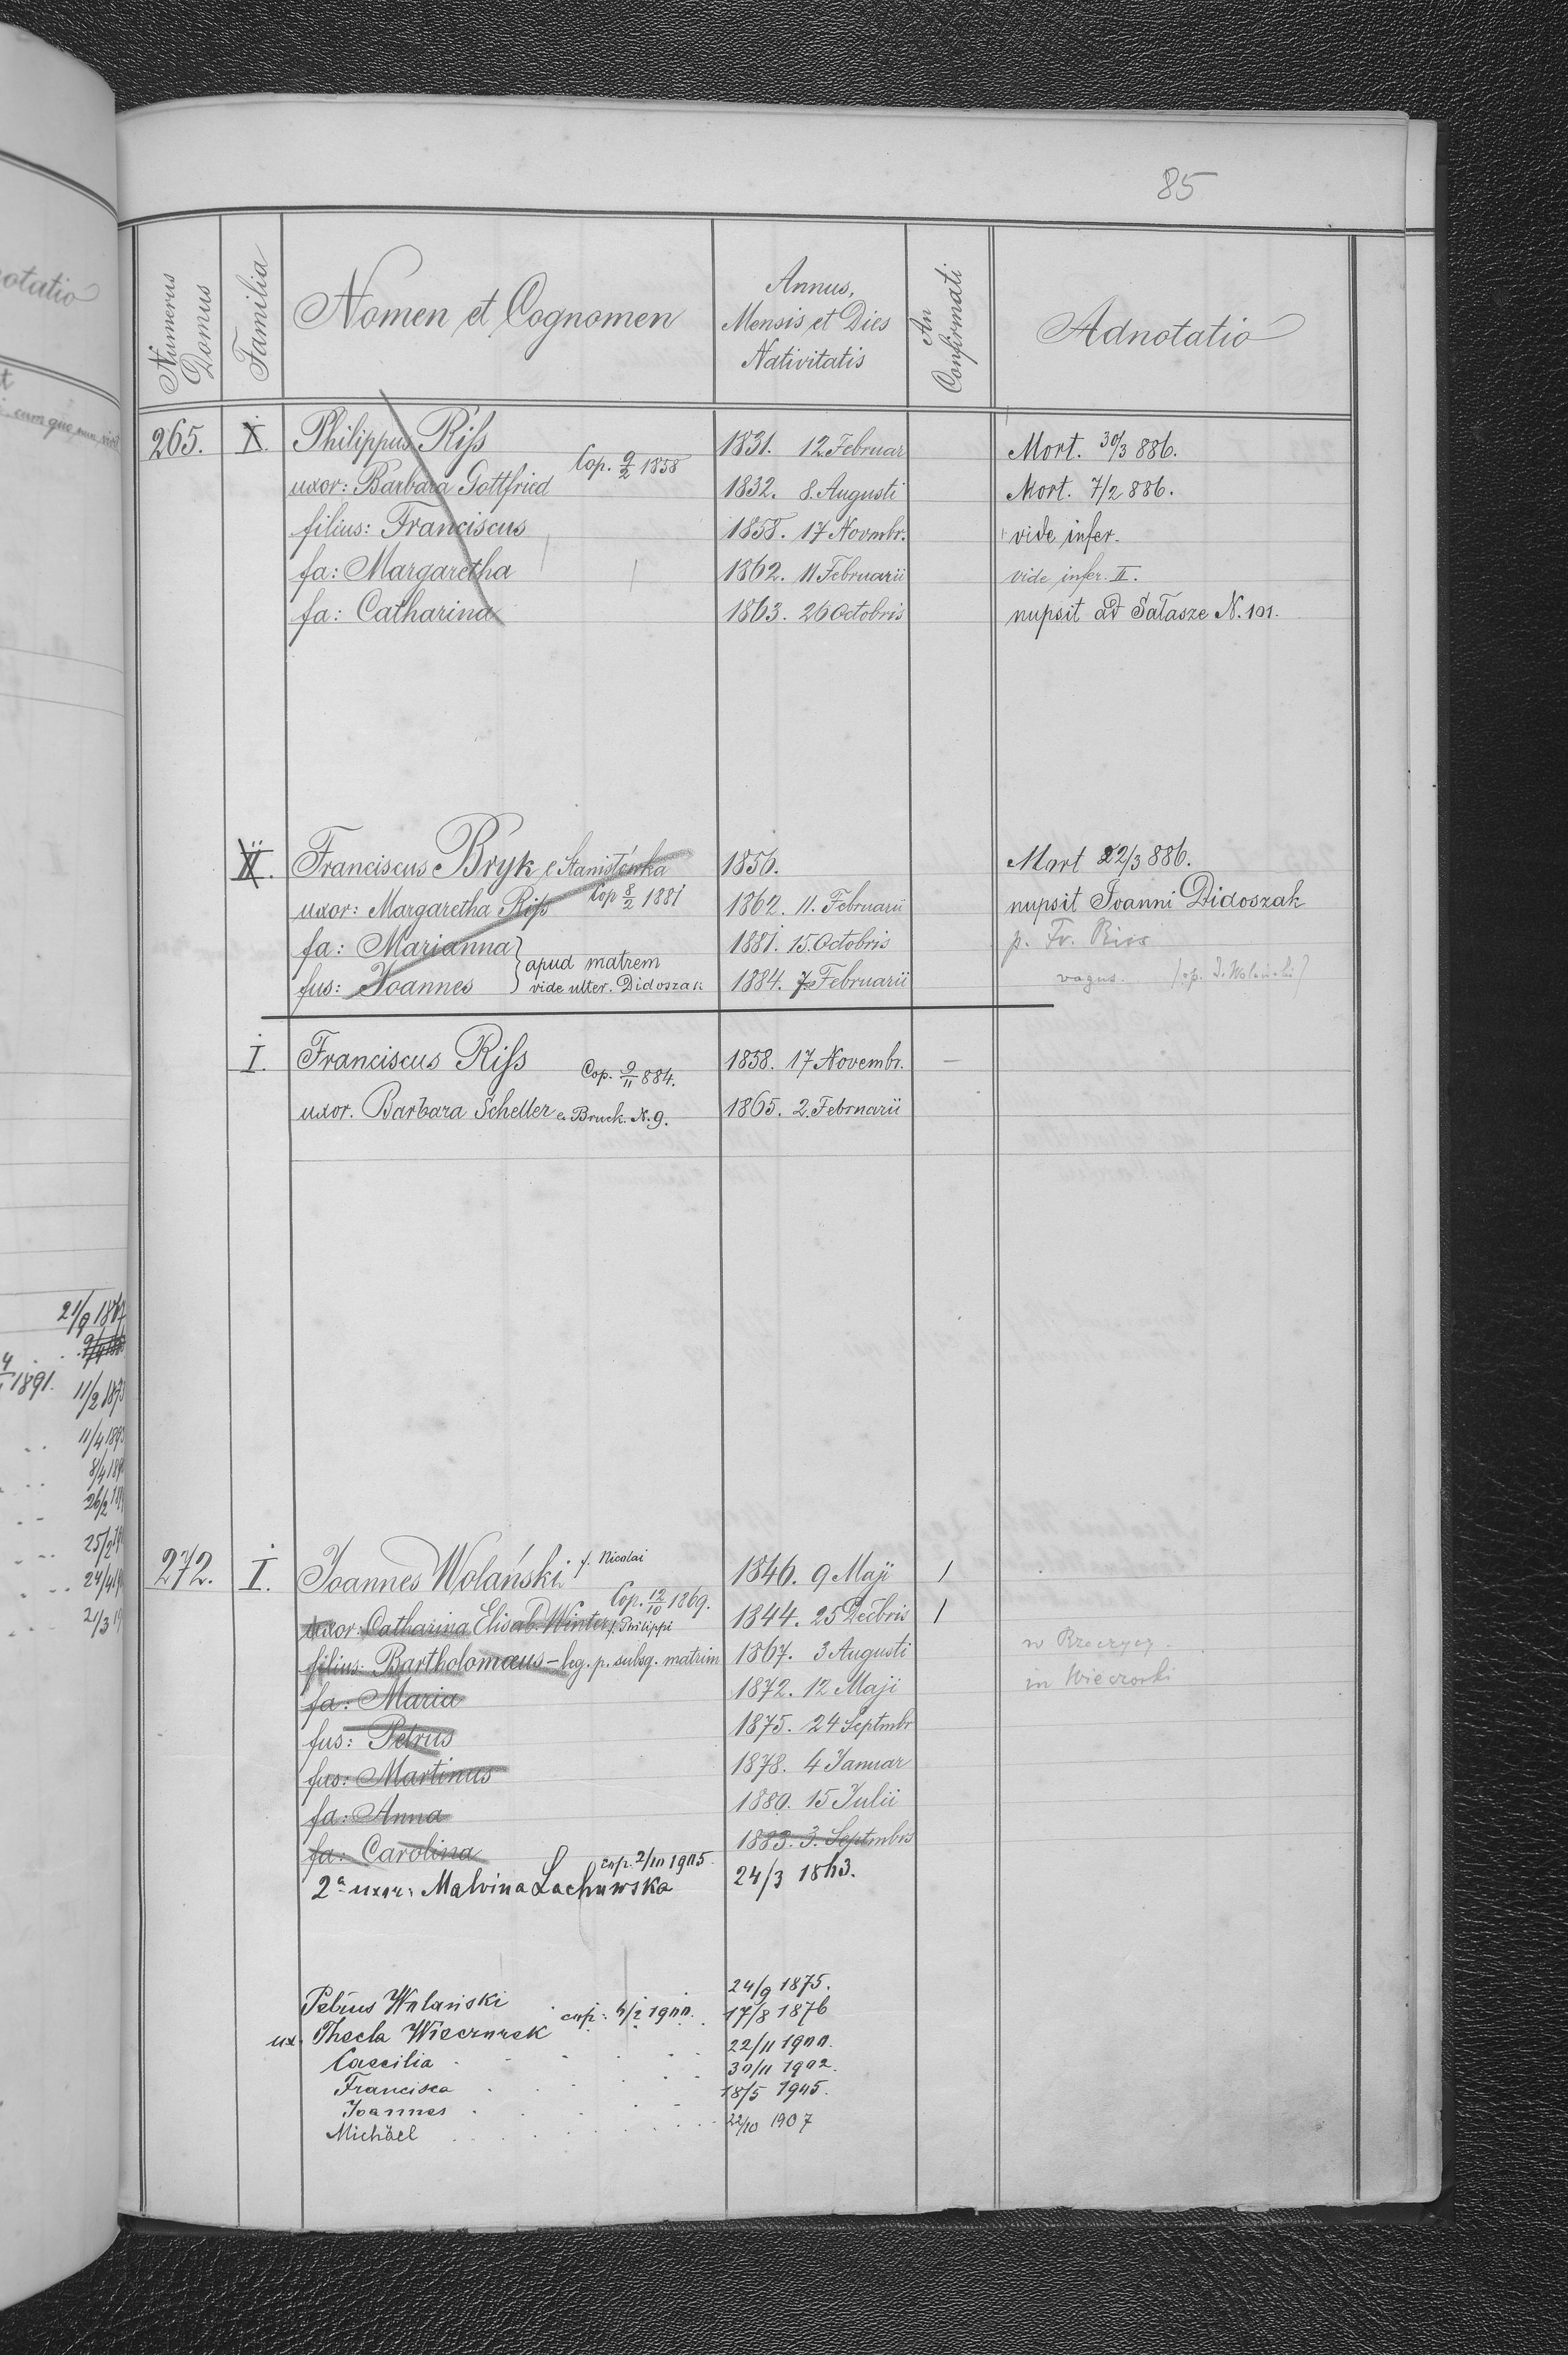 85
Numerus Domus
Familia
Nomen et Cognomen
Annus,
Mensis et Dies
Nativitatis
An Confirmati
Adnotatio
265. I. Philippus Riſs 1831. 12 Februar Mort. 30/3 886.
Cop. 9/2 1858
uxor: Barbara Gottfried 1832. 8. Augusti Mort. 7/2 886.
filius: Franciscus 1858. 17 Novmbr. vide infer.
fa: Margaretha 1862. 11 Februarii vide infer. II.
fa: Catharina 1863. 26 Octobris nupsit ad Sałasze N. 101.
II. Franciscus Bryk e Stanisłówka 1856. Mort 22/3 886.
Cop 8/2 1881
uxor: Margaretha Riſs 1862. 11. Februarii nupsit Joanni Didoszak
fa: Marianna 1881. 15. Octobris p. Fr. Riss
apud matrem
fus: Joannes vide ulter. Didoszak 1884. 7. Februarii vagus.
I. Franciscus Riſs 1858. 17 Novembr. —
Cop. 9/11 884.
uxor. Barbara Scheller e Bruck. N. 9. 1865. 2. Februarii
272. I. Joannes Wolański f. Nicolai 1846. 9 Maji /
Cop. 12/10 1869.
uxor: Catharina Elisab. Winter f. Philippi 1844. 25 Decbris /
filius: Bartholomæus – leg. p. subsq. matrim 1867. 3 Augusti w Rzeczycy
fa: Maria 1872. 12 Maji in Wieczorki
fus: Petrus 1875. 24 Septmbr
fus: Martinus 1878. 4 Januar
fa: Anna 1880. 15 Julii
fa: Carolina 1883. 3. Septmbris
cop. 2/10 1905.
2ª uxor: Malvina Lachowska 24/3 1863.
Petrus Wolański 24/9 1875.
ux. Thecla Wieczorek cop: 6/2 1900. 17/8 1876
Caecilia 22/11 1900.
Francisca 30/11 1902.
Joannes 18/5 1905.
Michäel 22/10 1907